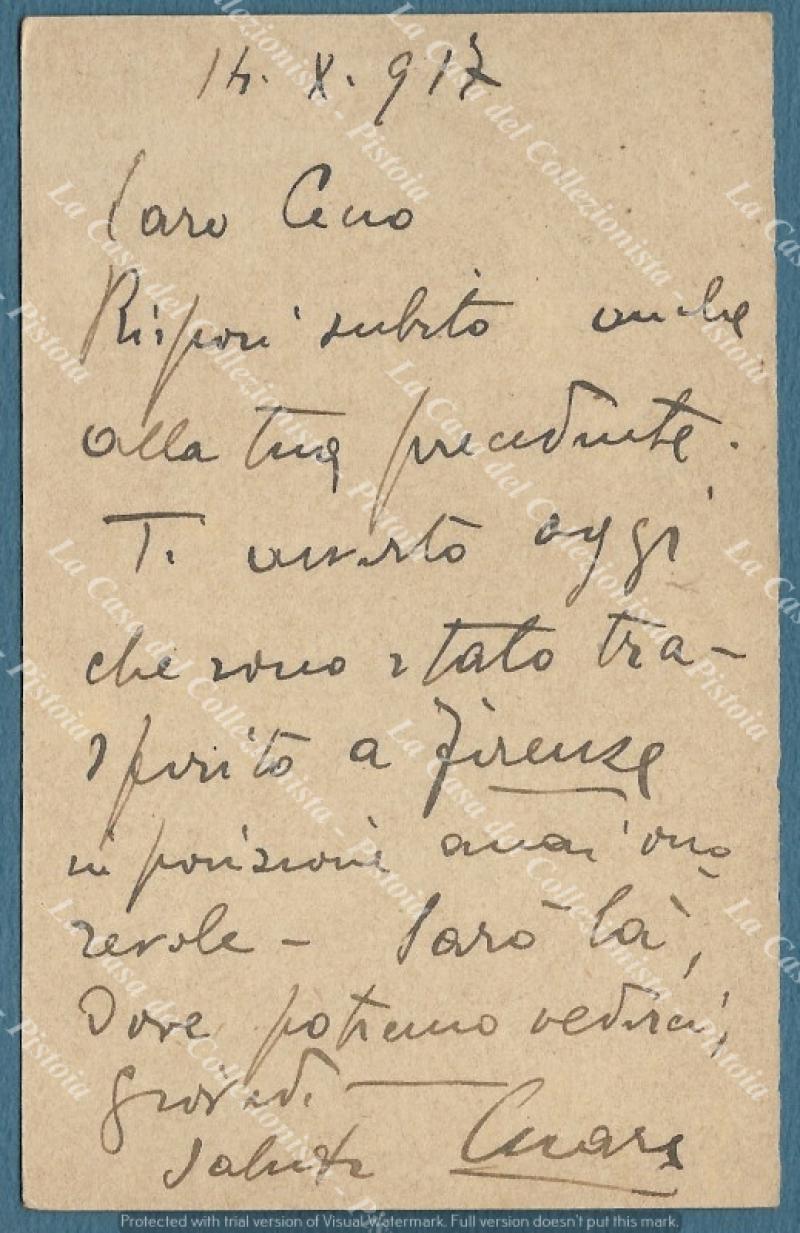 14. X. 917
Caro Ceno
Risposi subito anche
alla tua precedente.
Ti avverto oggi
che sono stato tra-
sferito a Firenze
in posizione assai ono
revole - Sarò là,
Dove potremo vederci,
giovedì —
Saluti Cesare
La Casa del Collezionista - Pistoia
Protected with trial version of Visual Watermark. Full version doesn't put this mark.